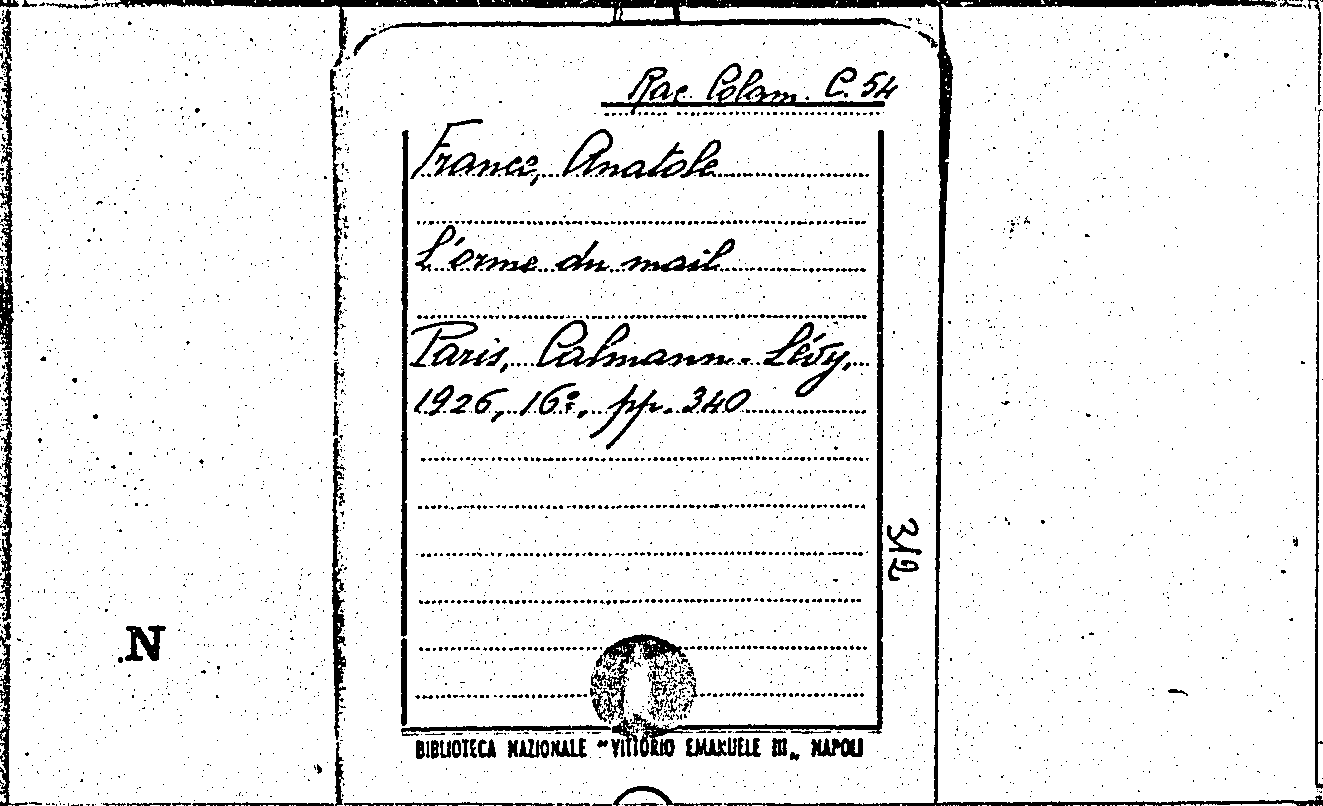 Rac. Colam. C. 54
France, Anatole
L'orme du mail
Paris, Calmann-Lévy,
1926, 16º, pp. 340
312
N
BIBLIOTECA NAZIONALE "VITTORIO EMANUELE III„ NAPOLI